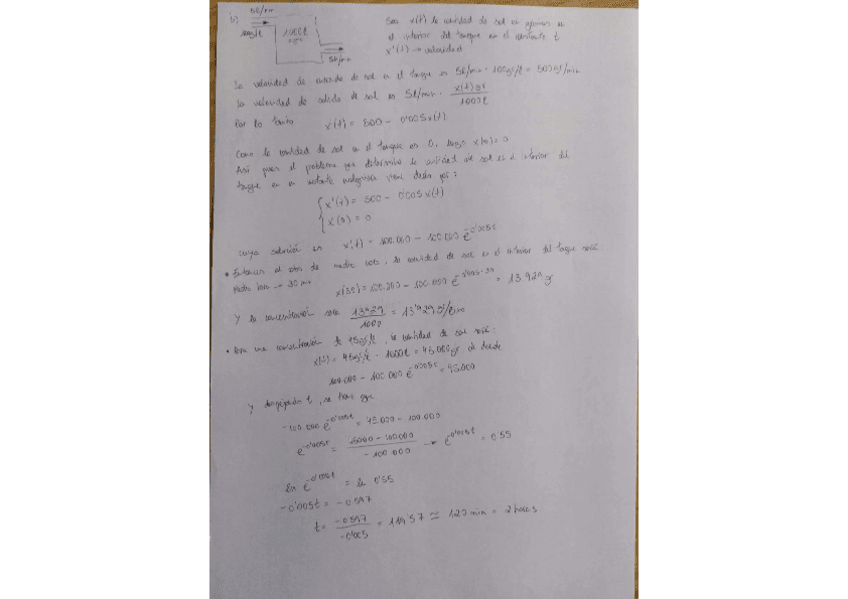 b)
5l/min
100g/l
1000l
5l/min
Sea x(t) la cantidad de sal en gramos en
el interior del tanque en el instante t
x'(t) → velocidad
La velocidad de entrada de sal en el tanque es 5l/min · 100g/l = 500g/min
La velocidad de salida de sal es 5l/min · x(t)gr / 1000l
Por lo tanto x'(t) = 500 - 0'005x(t)
Como la cantidad de sal en el tanque es 0, luego x(0) = 0
Así pues el problema que determina la cantidad de sal en el interior del
tanque en un instante cualquiera viene dado por:
x'(t) = 500 - 0'005x(t)
x(0) = 0
cuya solución es x(t) = 100.000 - 100.000 e^-0'005t
• Entonces al cabo de media hora, la cantidad de sal en el interior del tanque será
Media hora → 30 min
x(30) = 100.000 - 100.000 e^-0'005·30 = 13.929 g
Y la concentración será 13929 / 1000 = 13'929 gr/litro
• Para una concentración de 45gr/l, la cantidad de sal será:
x(t) = 45gr/l · 1000l = 45.000gr, de donde
100.000 - 100.000 e^-0'005t = 45.000
Y despejando t, se tiene que
-100.000 e^-0'005t = 45.000 - 100.000
e^-0'005t = 45000 - 100000 / -100.000 → e^-0'005t = 0'55
ln e^-0'005t = ln 0'55
-0'005t = -0'597
t = -0'597 / -0'005 = 119'57 ≃ 120 min = 2 horas